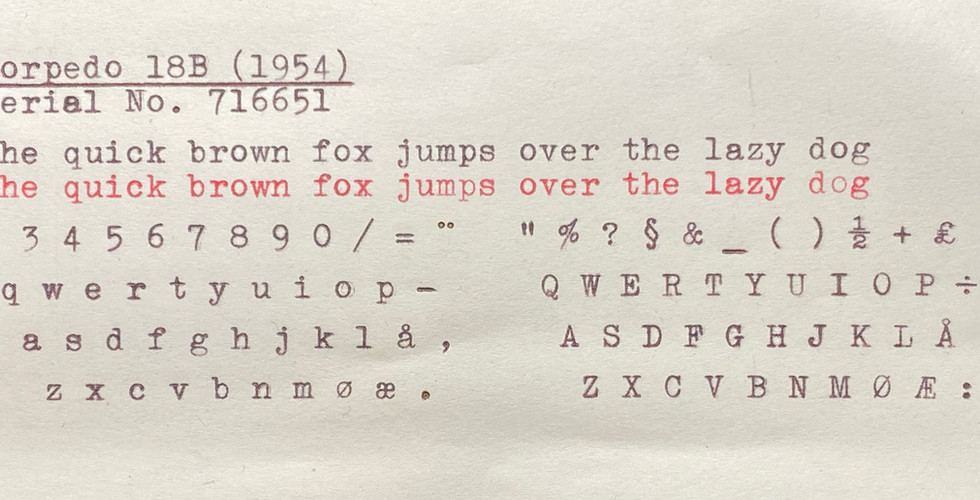 orpedo 18B (1954)
erial No. 716651
he quick brown fox jumps over the lazy dog
he quick brown fox jumps over the lazy dog
3 4 5 6 7 8 9 0 / = ¨ " % ? § & _ ( ) ½ + £
q w e r t y u i o p - Q W E R T Y U I O P ÷
a s d f g h j k l å , A S D F G H J K L Å
z x c v b n m ø æ . Z X C V B N M Ø Æ :